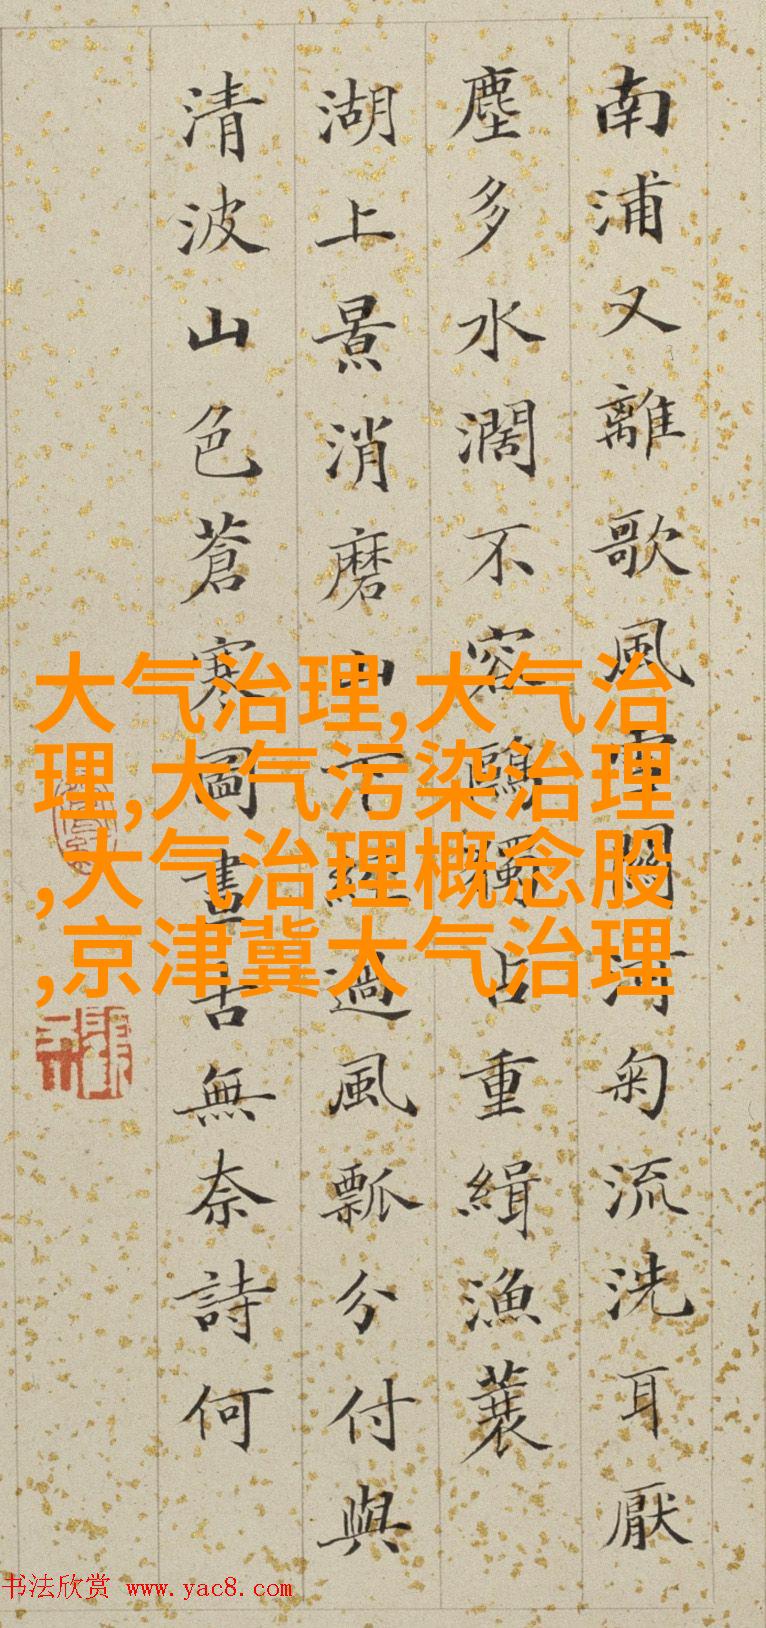 南浦又離歌風雨關河菊流洗耳厭
塵多水濶不容鷗獨占重緝漁蓑
湖上景消磨山下經過風瓢分付與
清波山色蒼寒圖畫古無奈詩何
大气治理,大气治
理,大气污染治理
,大气治理概念股
,京津冀大气治理
书法欣赏 www.yac8.com